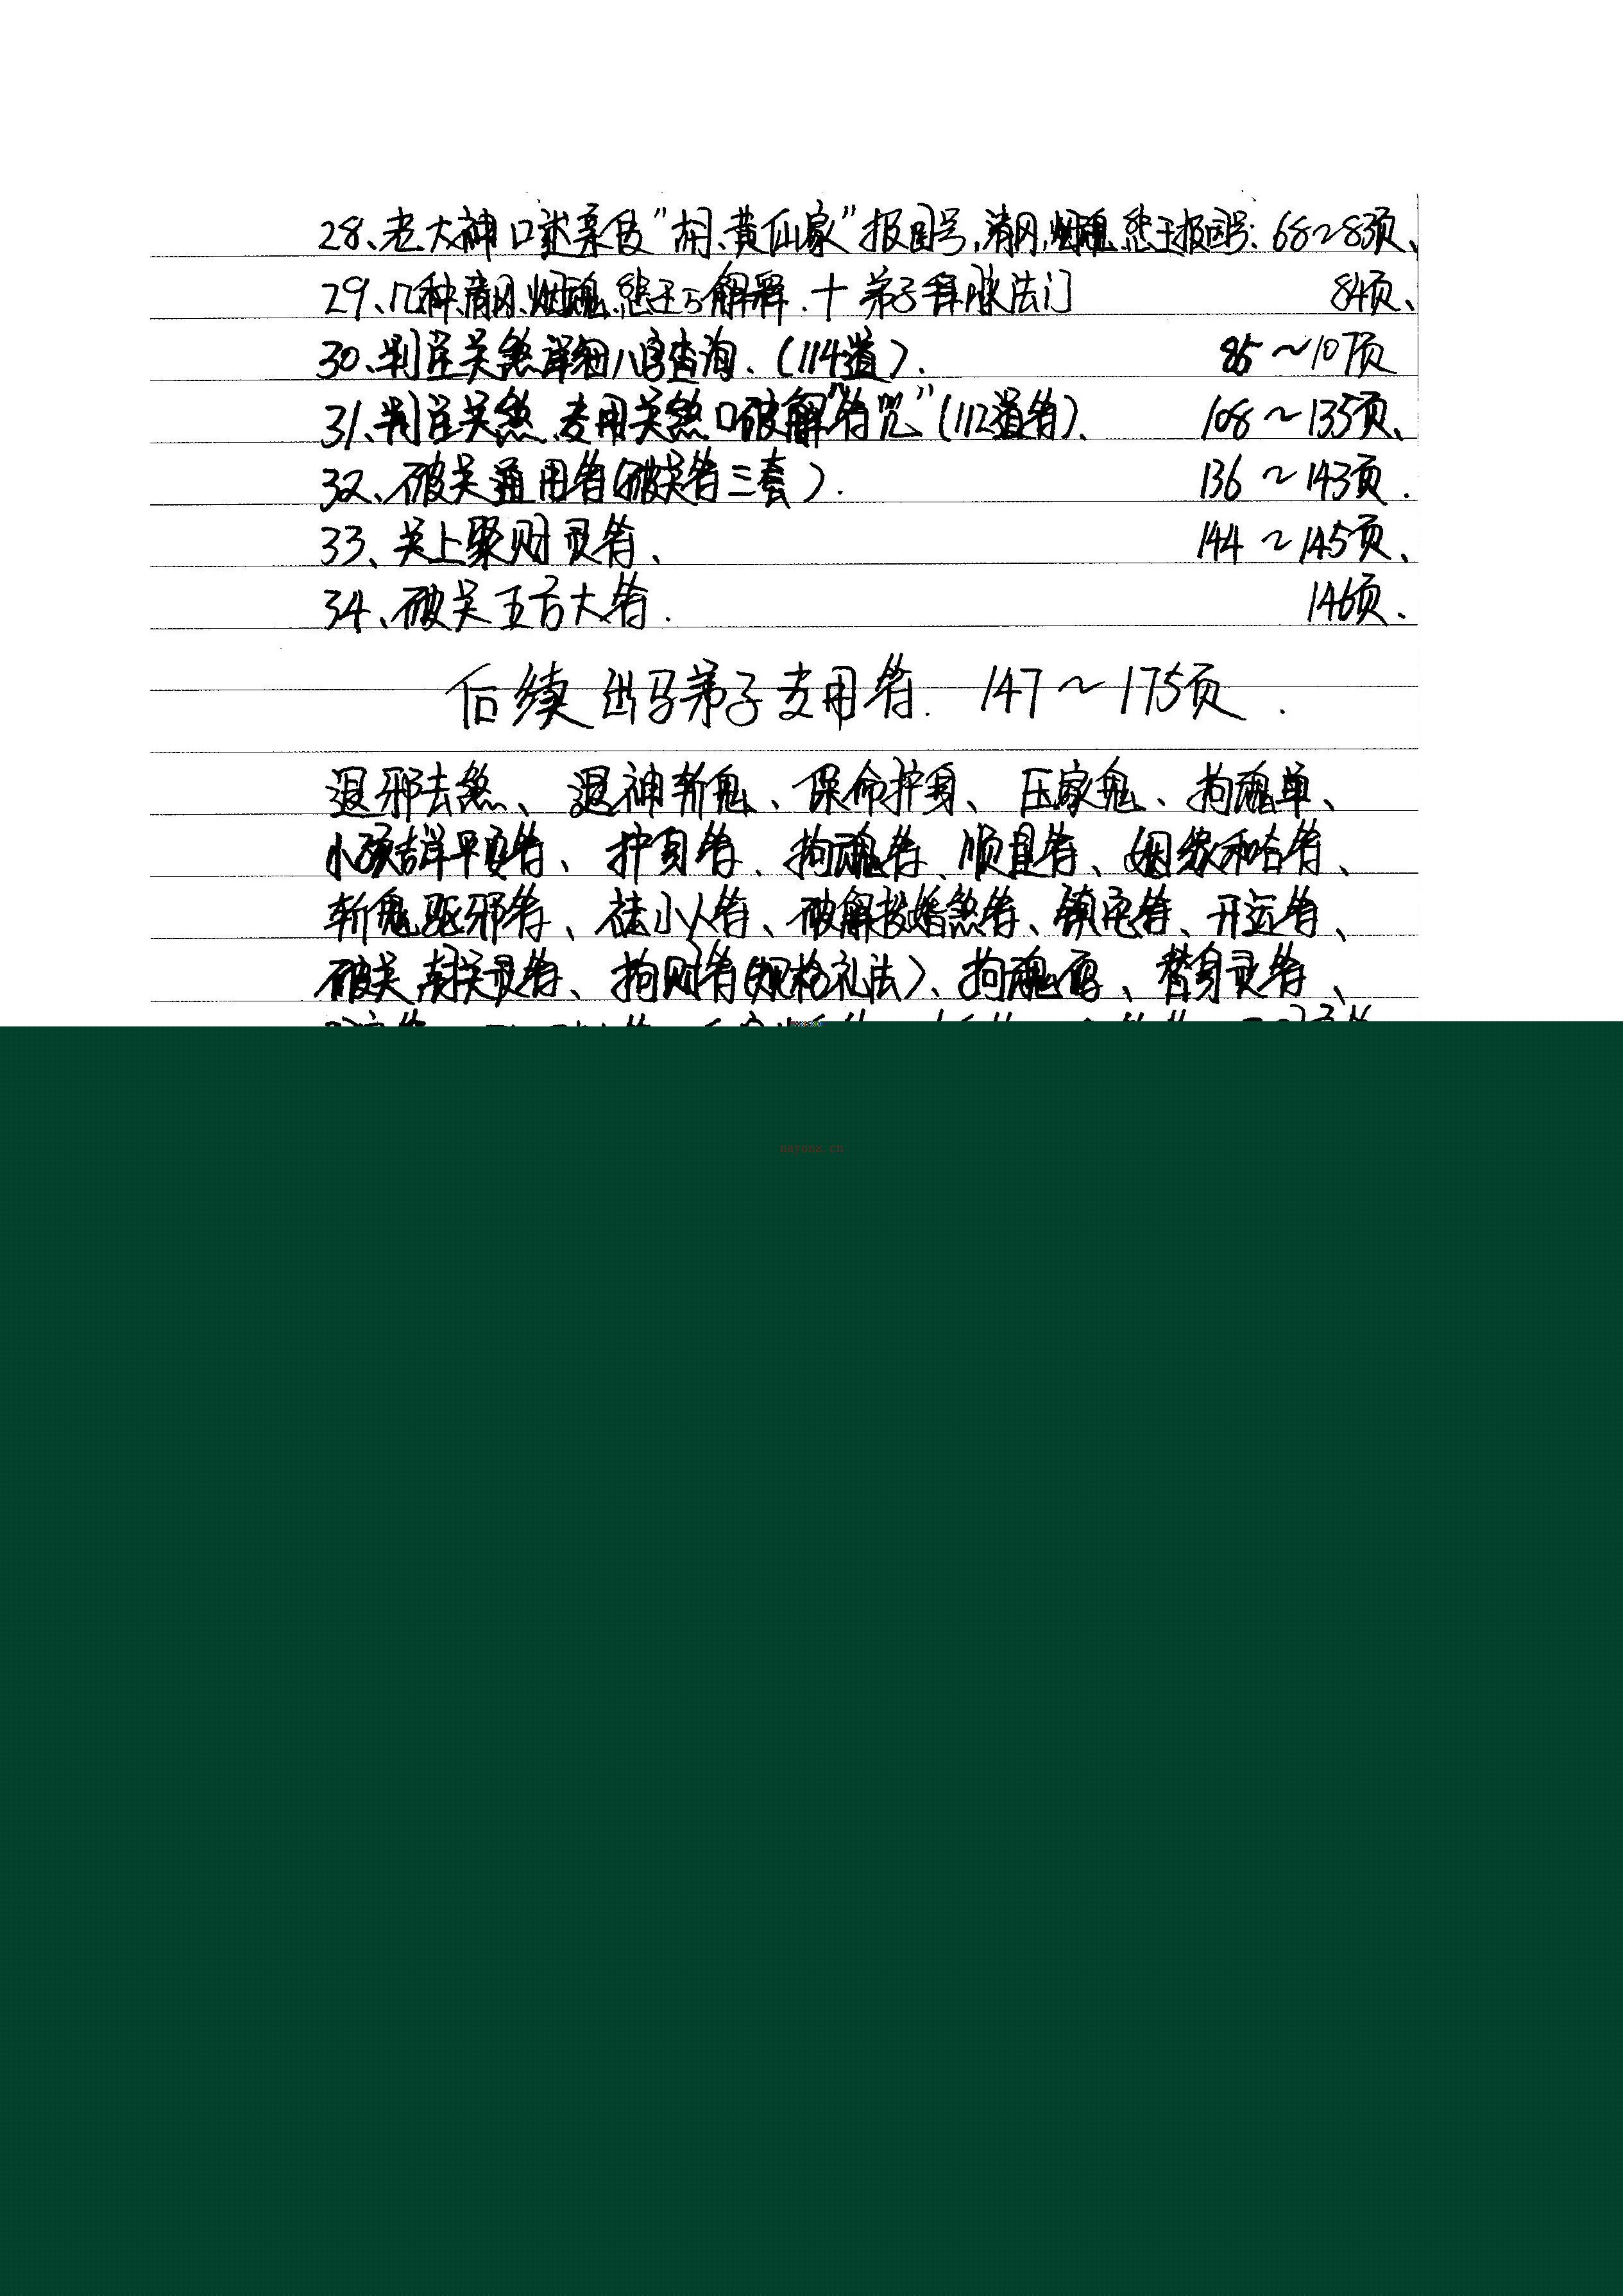 28、老大神口述亲传"胡、黄仙家"报国号,清风,烟魂 悲王报国号: 68~83页、
29、几种清风、烟魂、悲王 解释.十弟子串脉法门 84页、
30、判官关煞详细八字查询.(114道). 85~107页
31、判官关煞、专用关煞口破解"符咒"(112道符)、 108~135页、
32、破关通用符(破关符三套). 136~143页.
33、关上聚财灵符、 144~145页、
34、破关五方大符. 146页.
后续出马弟子专用符. 147~175页.
退邪去煞、退神斩鬼、保命护身、压家鬼、拘魂单、
小孩吉祥平安符、护身符、拘魂符、顺星符、姻缘和合符、
斩鬼驱邪符、祛小人符、破解披婚煞符、镇宅符、开运符、
破关 关灵符、拘财符(规格礼法)、拘魂码、替身灵符、
nayona.cn